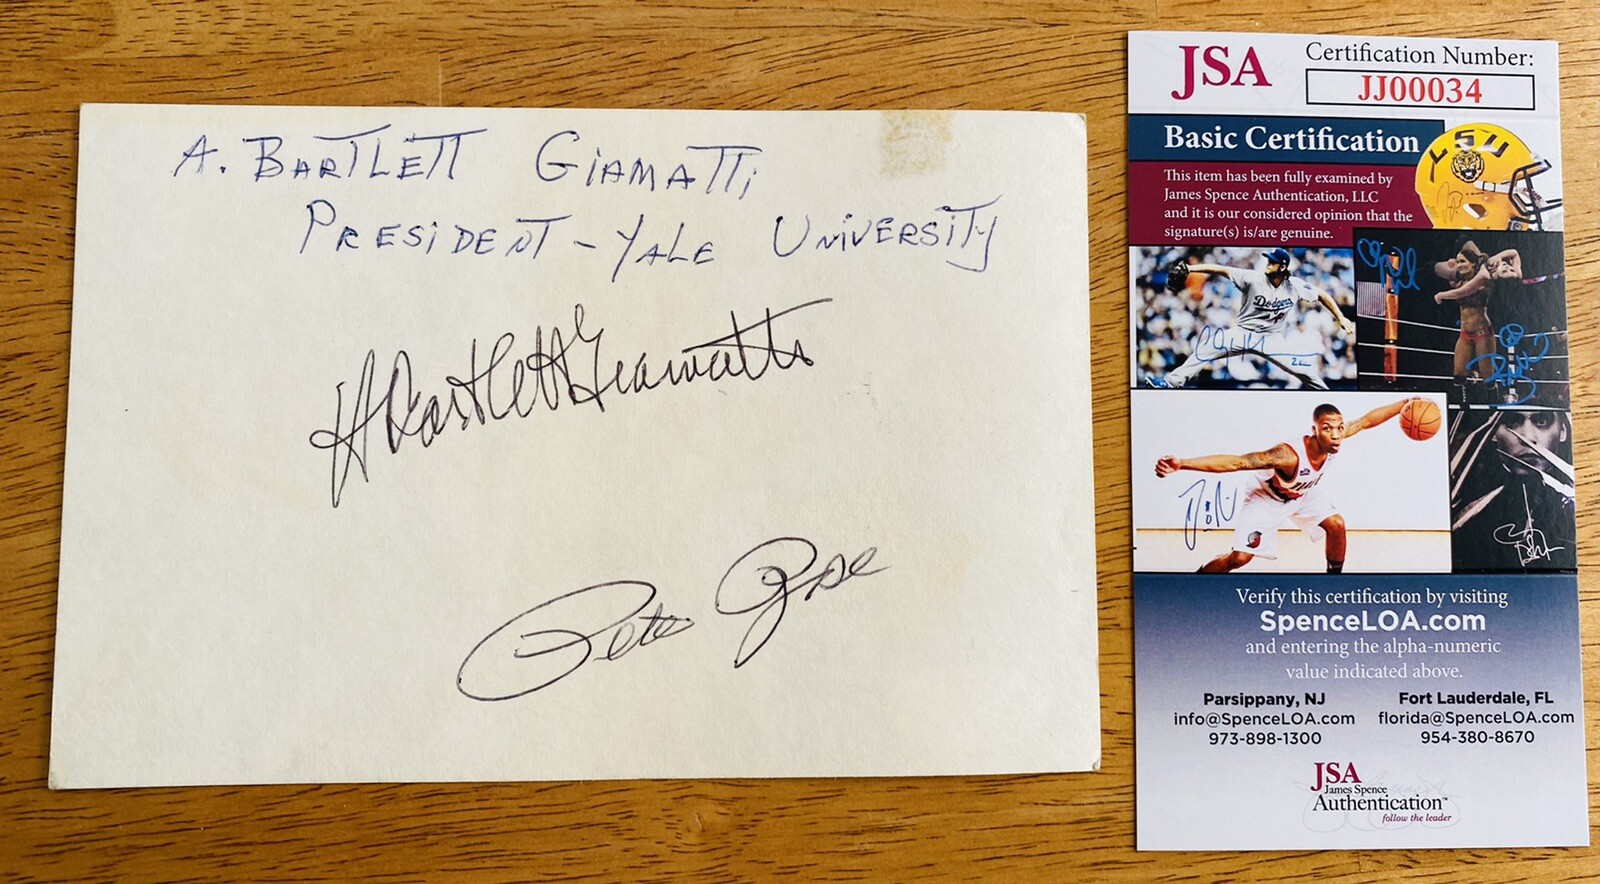 A. BARTLETT GIAMATTI
PRESIDENT - YALE UNIVERSITY
A Bartlett Giamatti
Pete Rose
JSA
Certification Number:
JJ00034
Basic Certification
This item has been fully examined by
James Spence Authentication, LLC
and it is our considered opinion that the
signature(s) is/are genuine.
LSU
Dodgers
22
Verify this certification by visiting
SpenceLOA.com
and entering the alpha-numeric
value indicated above.
Parsippany, NJ
info@SpenceLOA.com
973-898-1300
Fort Lauderdale, FL
florida@SpenceLOA.com
954-380-8670
JSA
James Spence
Authentication™
follow the leader